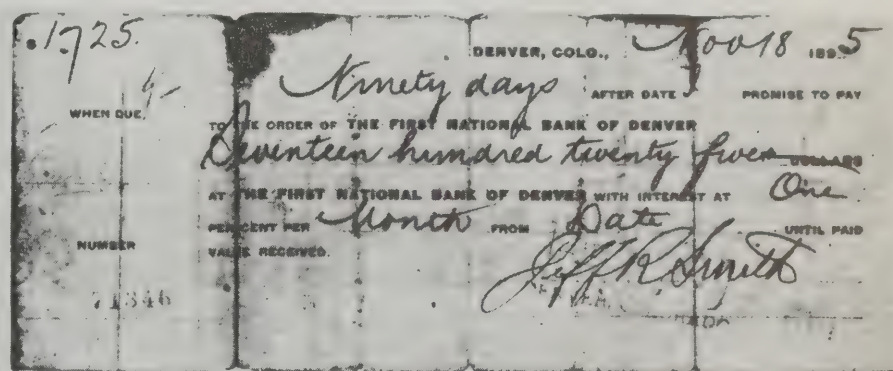 $1725.
DENVER, COLO., Nov 18 1895
Ninety days AFTER DATE I PROMISE TO PAY
WHEN DUE,
TO THE ORDER OF THE FIRST NATIONAL BANK OF DENVER
Seventeen hundred twenty five DOLLARS
AT THE FIRST NATIONAL BANK OF DENVER WITH INTEREST AT One
PER CENT PER Month FROM Date UNTIL PAID
NUMBER
VALUE RECEIVED.
Jeff R. Smith
71346